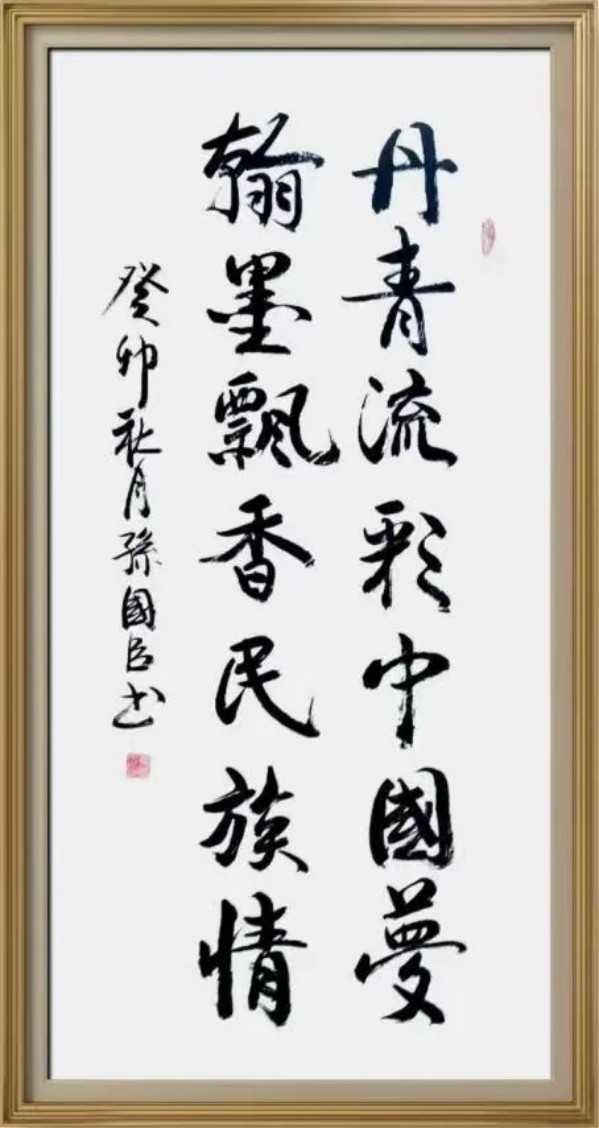 丹青流彩中國夢
翰墨飄香民族情
癸卯秋月孫國臣书